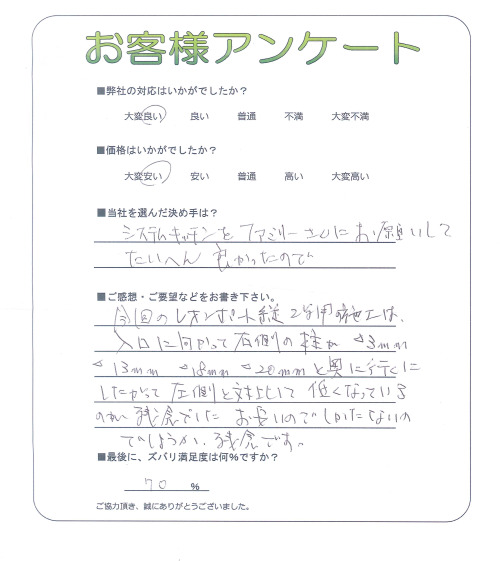 お客様アンケート
■弊社の対応はいかがでしたか？
大変良い 良い 普通 不満 大変不満
■価格はいかがでしたか？
大変安い 安い 普通 高い 大変高い
■当社を選んだ決め手は？
システムキッチンを ファミリーさんにお願いして
たいへん 良かったので
■ご感想・ご要望などをお書き下さい。
今回の 2台用の施工は、
入口に向かって右側の柱が △3mm
△13mm △18mm △20mmと奥に行くに
したがって 左側と対比して 低くなっている
のが 残念でした お長いのでしかたないの
でしょうか、残念です。
■最後に、ズバリ満足度は何％ですか？
70 ％
ご協力頂き、誠にありがとうございました。